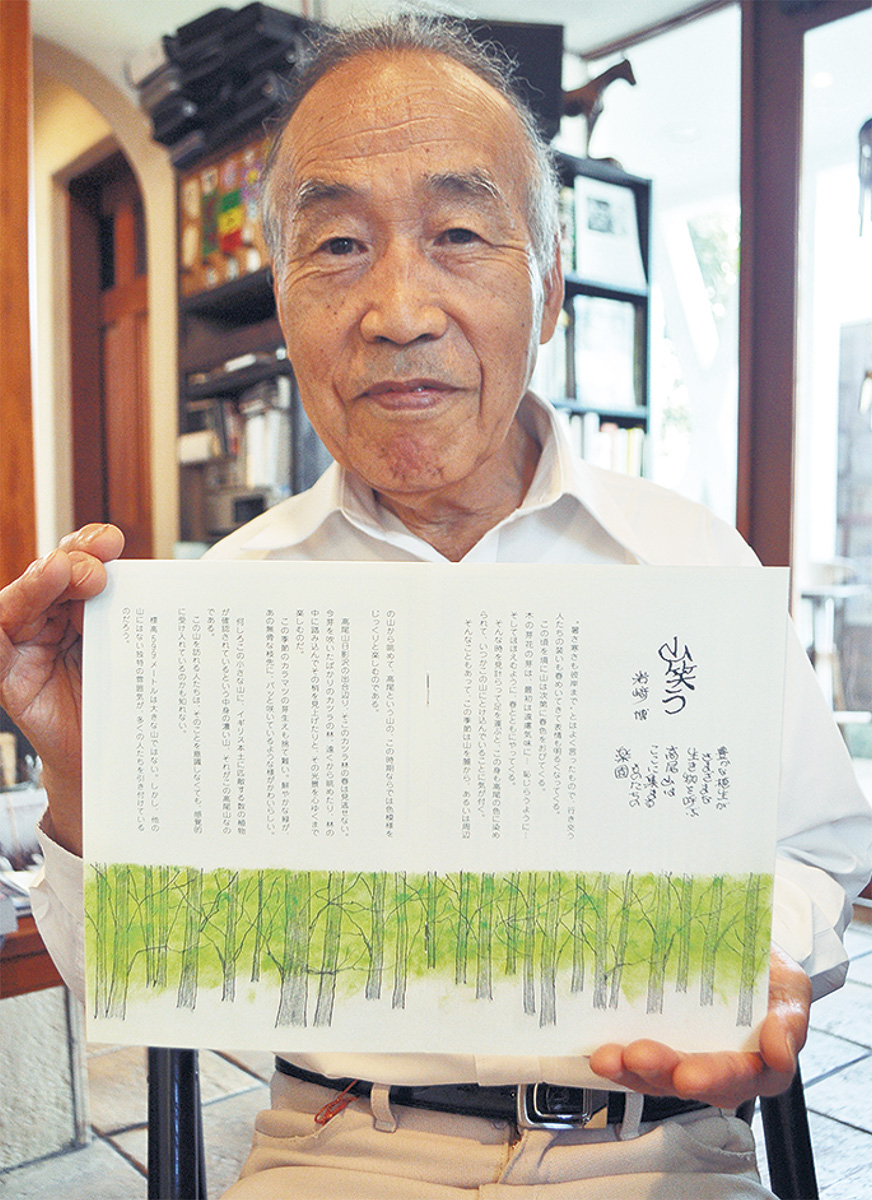 山笑う
岩崎 博
豊かな植生が
さまざまな
生き物を育む
高尾山は
ここに集まる
ものたちの
楽園
“暑さ寒さも彼岸まで”とはよく言ったもので、行き交う
人たちの装いも春めいてきて表情も明るくなってくる。
この頃を境に山は次第に春色をおびてくる。
木の芽花の芽は、最初は遠慮気味に…恥じらうように…
そしてほほえむように、春とともにやってくる。
そんな時を見計らって足を運ぶと、この身も高尾の色に染め
られて、いつかこの山にとけ込んでいることに気が付く。
そんなこともあって、この季節は山を麓から、あるいは周辺
の山から眺めて、高尾という山の、この時期ならでは色模様を
じっくりと楽しむのである。
高尾山日影沢の出合辺り、そこのカツラ林の春は見逃せない。
今芽を吹いたばかりのカツラの林、遠くから眺めたり、林の
中に踏み込んでその梢を見上げたりと、その光景を心ゆくまで
楽しむのだ。
この季節のカラマツの芽生えも捨て難い。鮮やかな緑が、
あの無骨な枝先に、パッと咲いているような様がかわいらしい。
何しろこの小さな山に、イギリス本土に匹敵する数の植物
が確認されているという中身の濃い山、それがこの高尾山なの
である。
この山を訪れる人たちは、そのことを意識しなくても、感覚的
に受け入れているのかも知れない。
標高599メートルは大きな山ではない。しかし、他の
山にはない独特の雰囲気が、多くの人たちを引き付けている
のだろう。